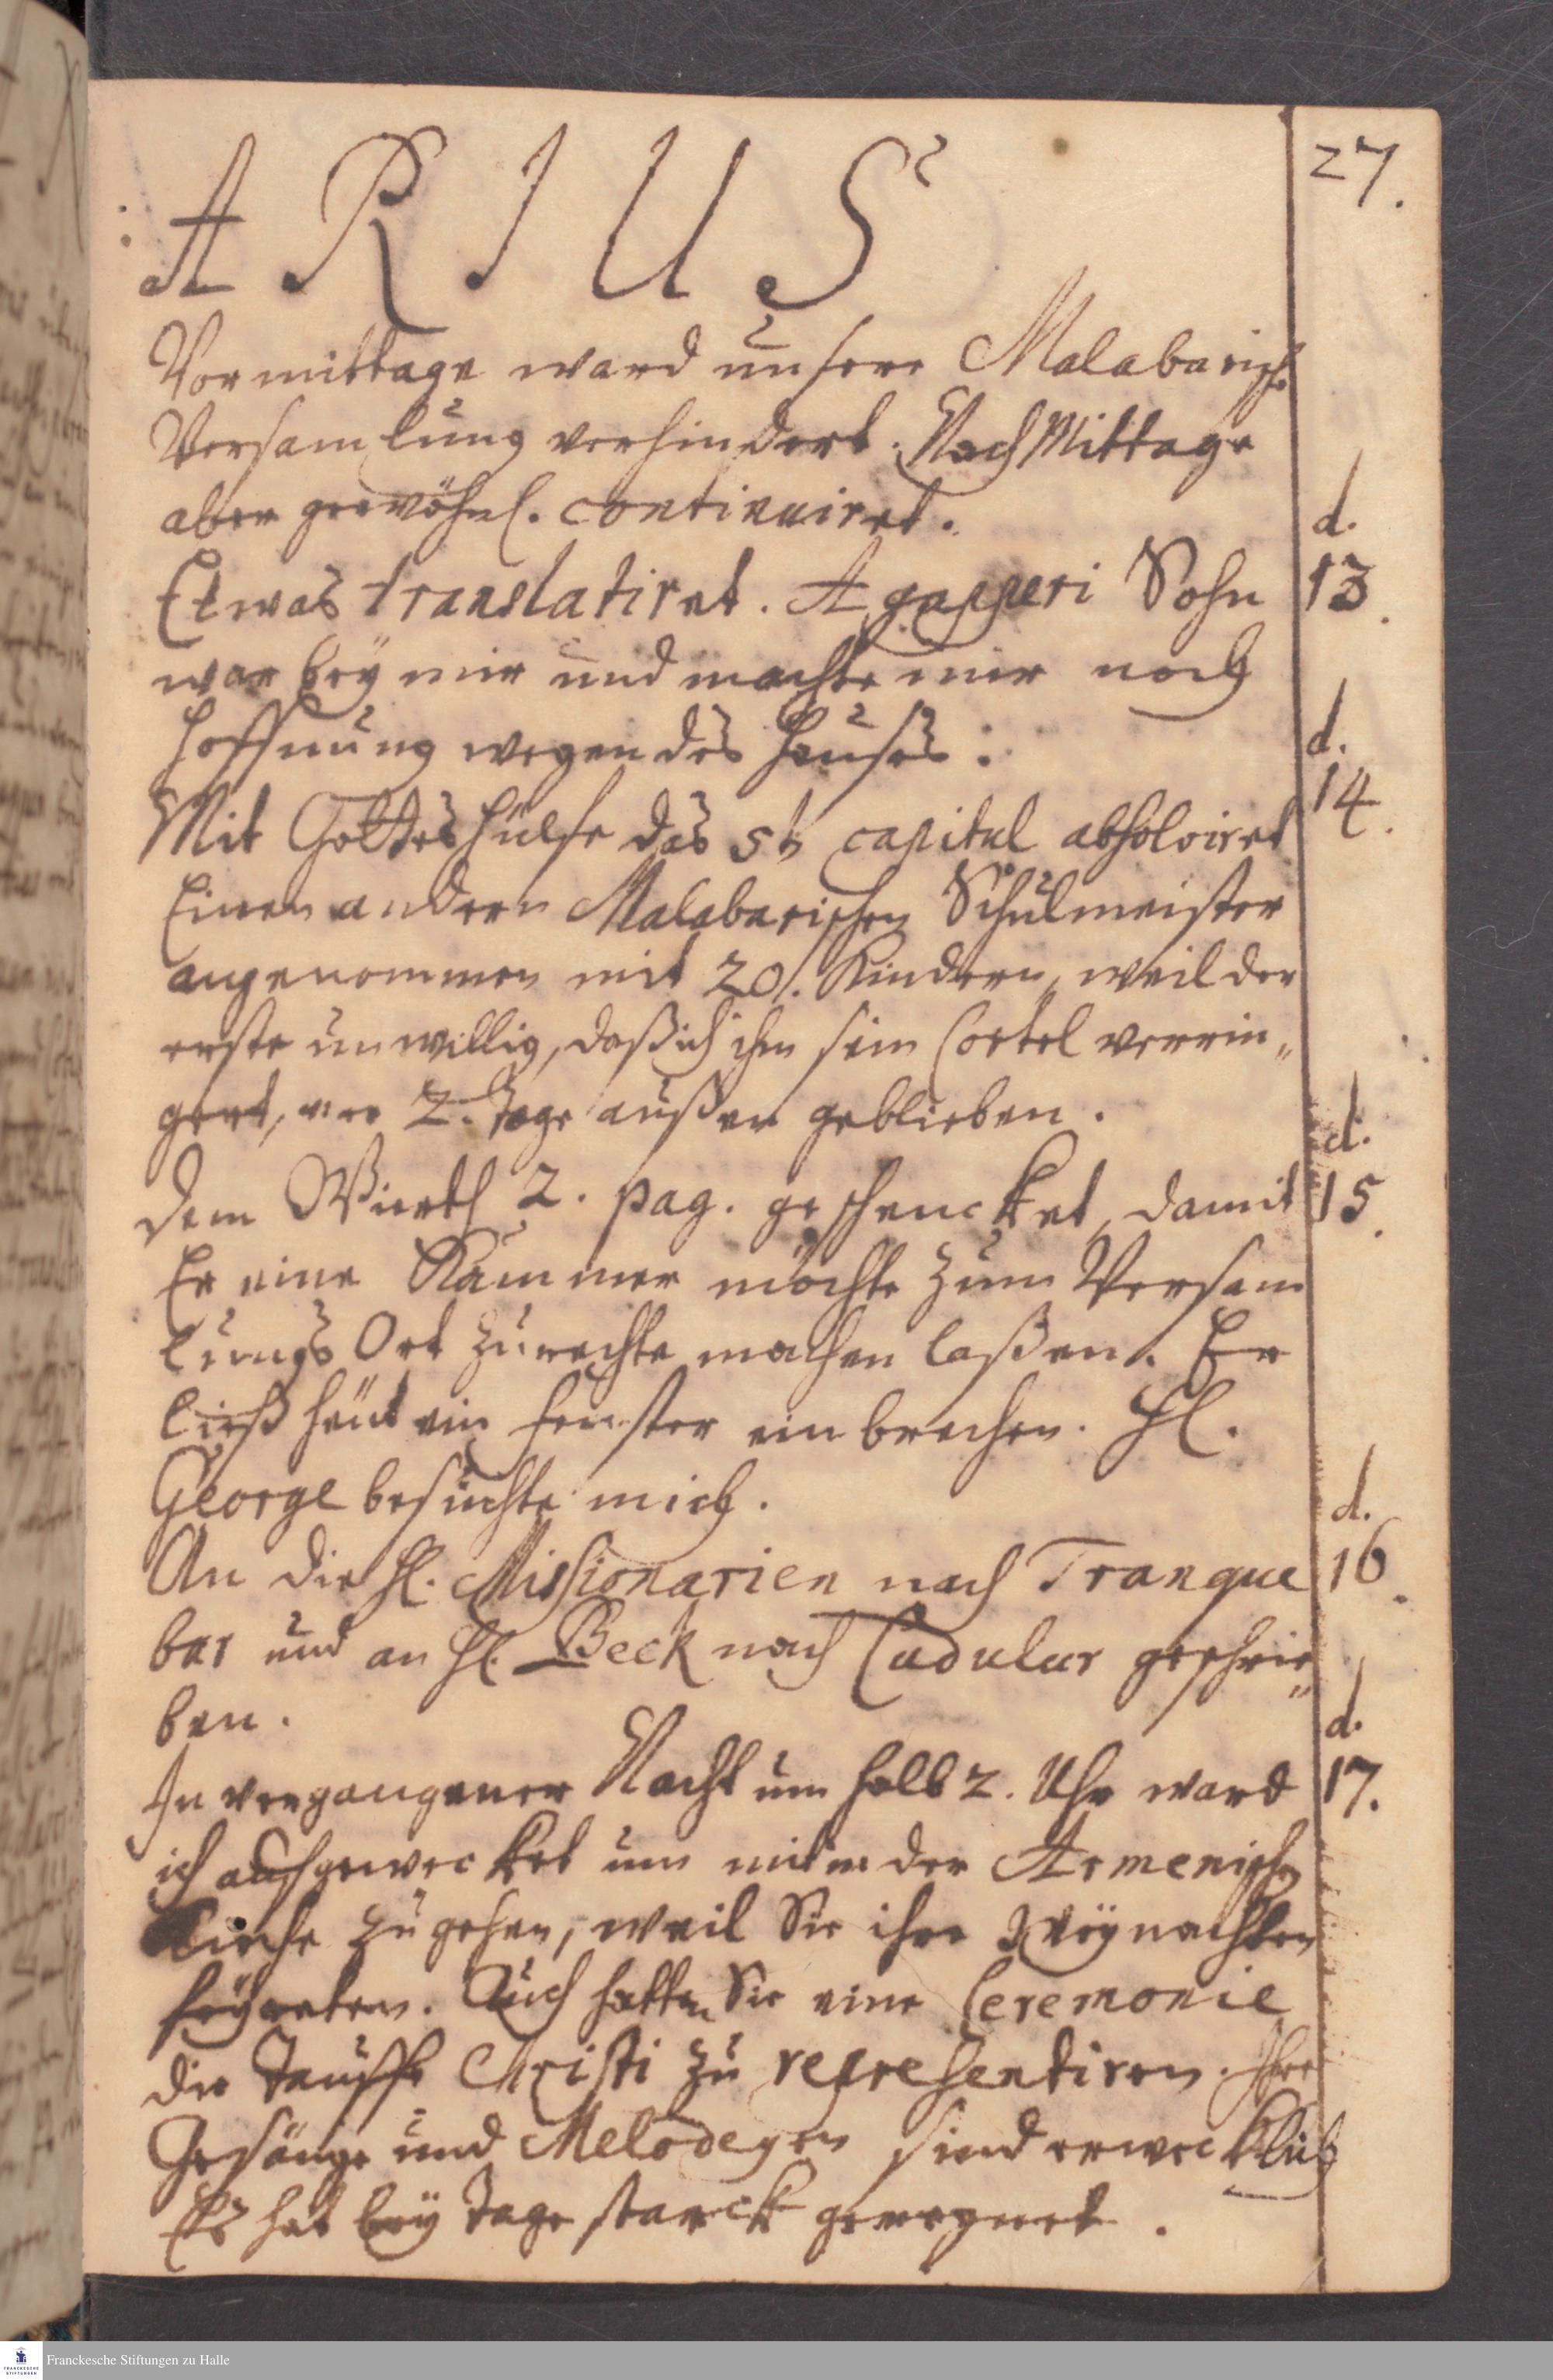 27.
ARIUS
Vormittage ward unsere Malabarische
Versamlung verhindert. Nach Mittage
aber gewöhnl. continuiret.
d.
13.
Etwas translatiret. Agapperi Sohn
war bey mir und machte mir noch
Hoffnung wegen des Hauses.
d.
14.
Mit Gottes Hülfe das 5te capitul absolviret
Einen andern Malabarischen Schulmeister
angenommen mit 20. Kindern, weil der
erste unwillig, daß ich ihm sein verrin„
gert, 2. Tage außen geblieben.
d.
15.
Dem Wirth 2. pag. geschencket, damit
Er eine Kammer möchte zum Versam
lungs Ort zurechte machen laßen. Er
ließ heut ein Fenster einbrechen. H.
George besuchte mich.
d.
16.
An die H. Missionarien nach Tranque
bar und an H. Beck nach Cudulur geschrie„
ben.
d.
17.
In vergangener Nacht um halb 2. Uhr ward
ich aufgewecket um mit in der Armenischen
Kirche zu gehen, weil Sie ihre Weynachten
feyreten. Auch hatten Sie eine Ceremonie
die Tauffe Christi zu representiren. Ihre
Gesänge und Melodeyen sind erwecklich
Es hat bey Tage starck geregnet.
Franckesche Stiftungen zu Halle
FRANCKESCHE
STIFTUNGEN